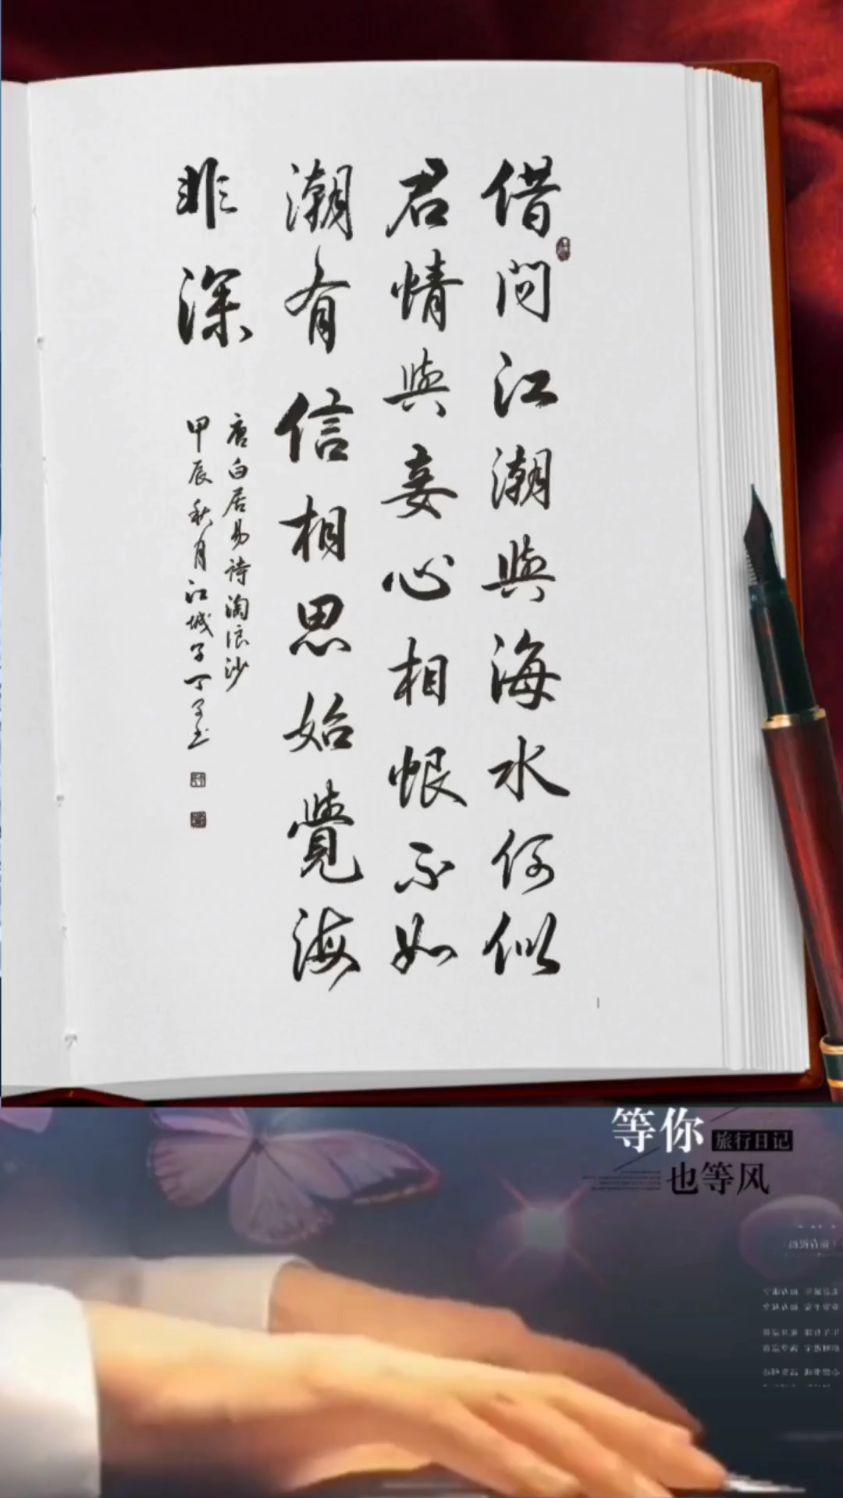 借問江潮與海水何似
君情與妾心相恨不如
潮有信相思始覺海
非深
唐白居易詩淘浪沙
甲辰秋月江城子丁
等你
旅行日记
也等风